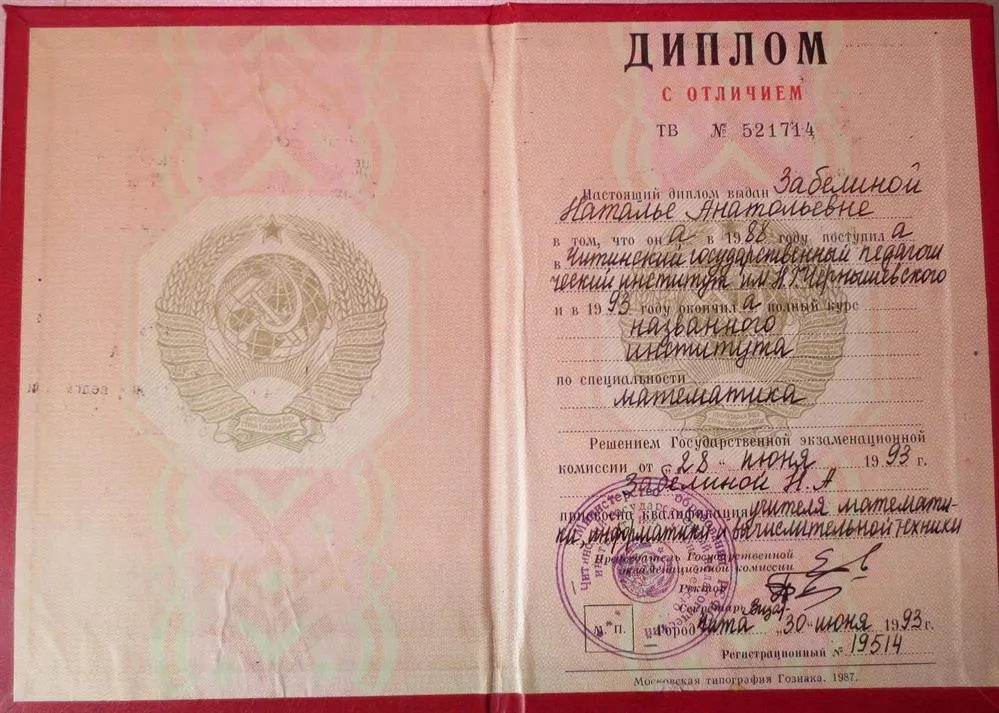 ДИПЛОМ
С ОТЛИЧИЕМ
ТВ № 521714
Настоящий диплом выдан Забелиной
Наталье Анатольевне
в том, что он а в 1988 году поступил а
в Читинский государственный педагоги
ческий институт им Н.Г.Чернышевского
и в 1993 году окончил а полный курс
названного
института
по специальности
математика
Решением Государственной экзаменационной
комиссии от „28" июня 1993 г.
Забелиной Н.А
присвоена квалификация учителя математи-
ки, информатики и вычислительной техники
Председатель Государственной
экзаменационной комиссии
Ректор
Секретарь
М. П. Город Чита „30" июня 1993г.
Регистрационный № 19514
Московская типография Гознака. 1987.